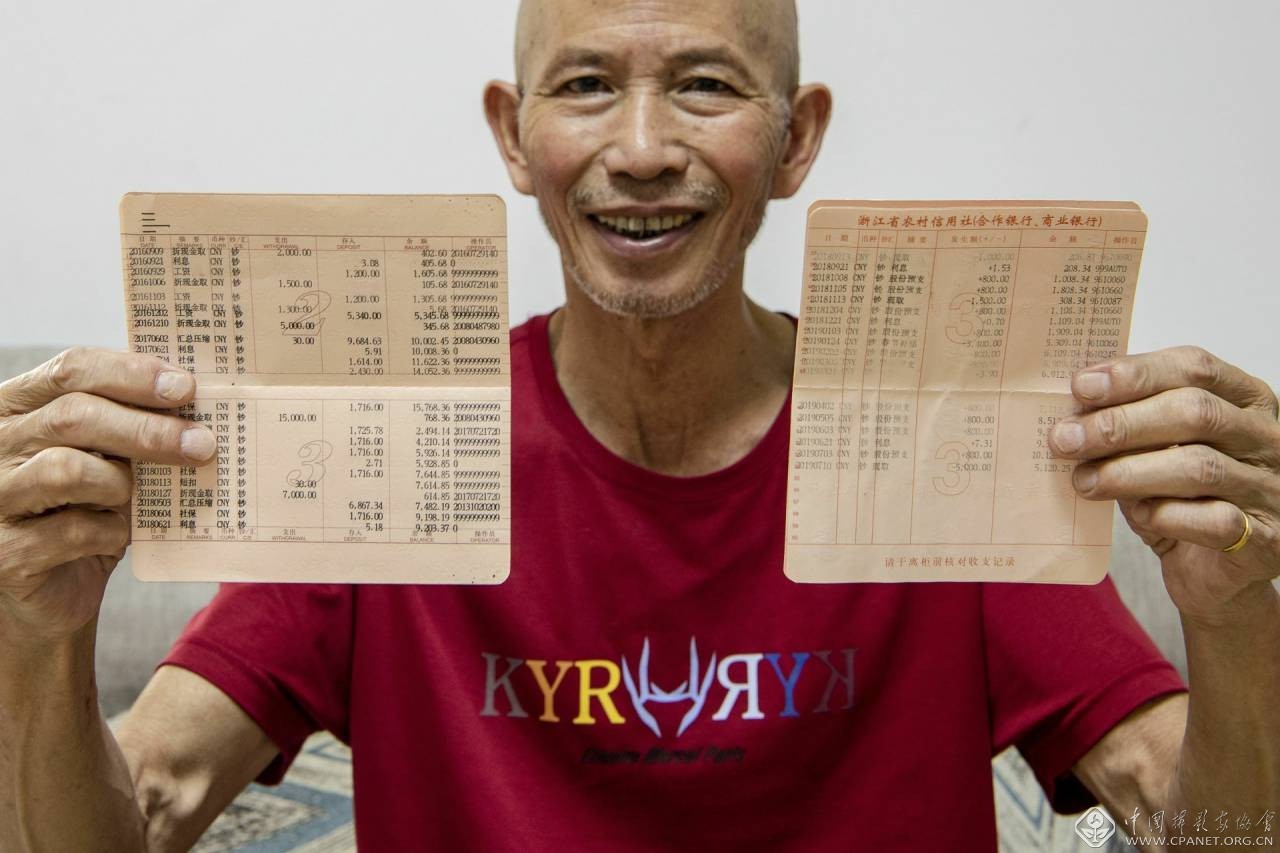 日期 摘要 币种 钞/汇 支出 存入 余额 操作员
DATE REMARKS CURR C/E WITHDRAWAL DEPOSIT BALANCE OPERATOR
20160909 折现金取 CNY 钞 2,000.00 402.60 20160729140
20160921 利息 CNY 钞 3.08 405.68 0
20160929 工资 CNY 钞 1,200.00 1,605.68 99999999999
20161006 折现金取 CNY 钞 1,500.00 105.68 20160729140
20161103 工资 CNY 钞 1,200.00 1,305.68 99999999999
20161112 折现金取 CNY 钞 1,300.00 5.68 20160729140
20161202 工资 CNY 钞 5,340.00 5,345.68 99999999999
20161210 折现金取 CNY 钞 5,000.00 345.68 20080487980
20170602 汇总压缩 CNY 钞 30.00 9,684.63 10,002.45 20080430960
20170621 利息 CNY 钞 5.91 10,008.36 0
社保 CNY 钞 1,614.00 11,622.36 99999999999
社保 CNY 钞 2,430.00 14,052.36 99999999999
2
社保 CNY 钞 1,716.00 15,768.36 99999999999
折现金取 CNY 钞 15,000.00 768.36 20080430960
CNY 钞 1,725.78 2,494.14 20170721720
CNY 钞 1,716.00 4,210.14 99999999999
CNY 钞 1,716.00 5,926.14 99999999999
CNY 钞 2.71 5,928.85 0
20180103 社保 CNY 钞 1,716.00 7,644.85 99999999999
20180113 短扣 CNY 钞 30.00 7,614.85 99999999999
20180127 折现金取 CNY 钞 7,000.00 614.85 20170721720
20180503 汇总压缩 CNY 钞 6,867.34 7,482.19 20131020200
20180604 社保 CNY 钞 1,716.00 9,198.19 99999999999
20180621 利息 CNY 钞 5.18 9,203.37 0
3
日期 摘要 币种 钞/汇 支出 存入 余额 操作员
DATE REMARKS CURR C/E WITHDRAWAL DEPOSIT BALANCE OPERATOR
浙江省农村信用社(合作银行、商业银行)
日期 币种 钞汇 摘要 发生额(+/-) 余额 操作员
20180913 CNY 钞 -1,000.00 206.81
20180921 CNY 钞 利息 +1.53 208.34 999AUTO
20181008 CNY 钞 股份预支 +800.00 1,008.34 9610060
20181105 CNY 钞 股份预支 +800.00 1,808.34 9610060
20181113 CNY 钞 -1,500.00 308.34 9610087
20181204 CNY 钞 股份预支 +800.00 1,108.34 9610060
20181221 CNY 钞 利息 +0.70 1,109.04 999AUTO
20190103 CNY 钞 股份预支 +800.00 1,909.04 9610060
20190124 CNY 钞 5,309.04 9610060
6,109.04 9610245
6,912.9
3
20190402 CNY 钞 股份预支 +800.00
20190505 CNY 钞 股份预支 +800.00
20190603 CNY 钞 股份预支 +800.00
20190621 CNY 钞 利息 +7.31
20190703 CNY 钞 股份预支 +800.00
20190710 CNY 钞 -5,000.00 5,120.25
3
请于离柜前核对收支记录
KYR ЯYK
中国摄影家协会
WWW.CPANET.ORG.CN